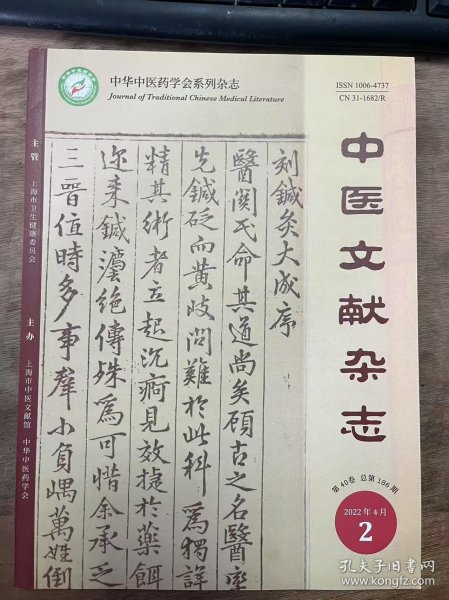 中华中医药学会系列杂志
Journal of Traditional Chinese Medical Literature
ISSN 1006-4737
CN 31-1682/R
中医文献杂志
刻鍼灸大成序
醫関民命其道尚矣顧古之名醫率
先鍼砭而黄岐問難於此科爲獨詳
精其術者立起沉痾見效捷於藥餌
迩来鍼灋絶傳殊爲可惜余承乏
三晉值時多事群小負嵎萬姓倒
主管 上海市卫生健康委员会
主办 上海市中医文献馆 中华中医药学会
第40卷 总第186期
2022年4月
2
孔夫子旧书网
kongfz.com